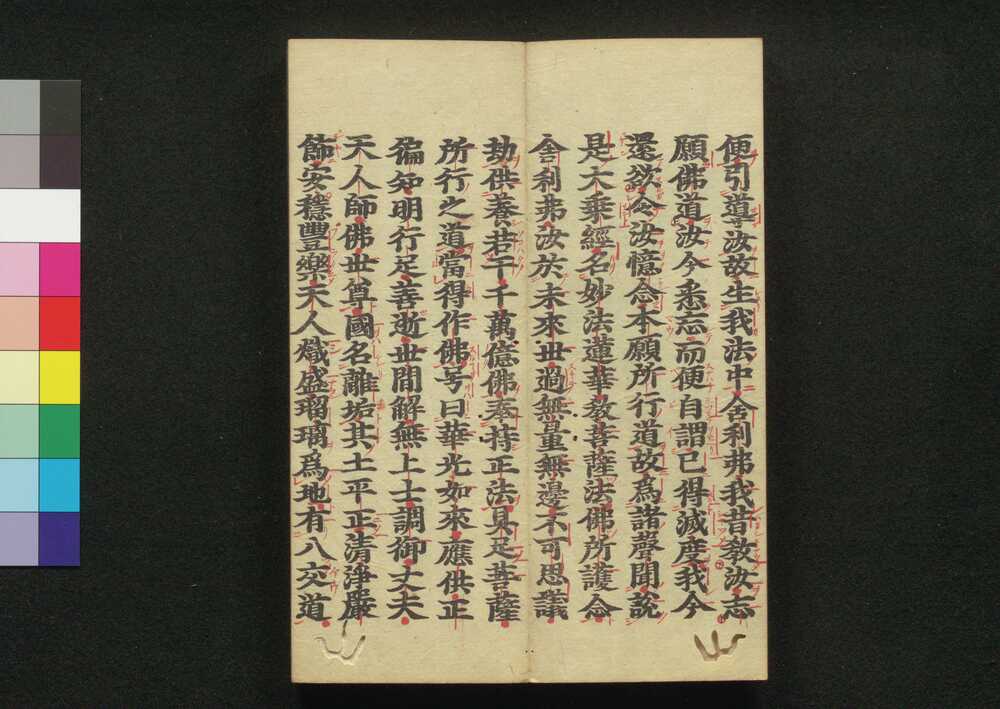 便引導汝故生我法中舍利弗我昔教汝志
願佛道汝今悉忘而便自謂已得滅度我今
還欲令汝憶念本願所行道故爲諸聲聞說
是大乘經名妙法蓮華教菩薩法佛所護念
舍利弗汝於未來世過無量無邊不可思議
劫供養若干千萬億佛奉持正法具足菩薩
所行之道當得作佛号曰華光如來應供正
徧知明行足善逝世間解無上士調御丈夫
天人師佛世尊國名離垢其土平正清淨嚴
飾安穩豐樂天人熾盛瑠璃爲地有八交道